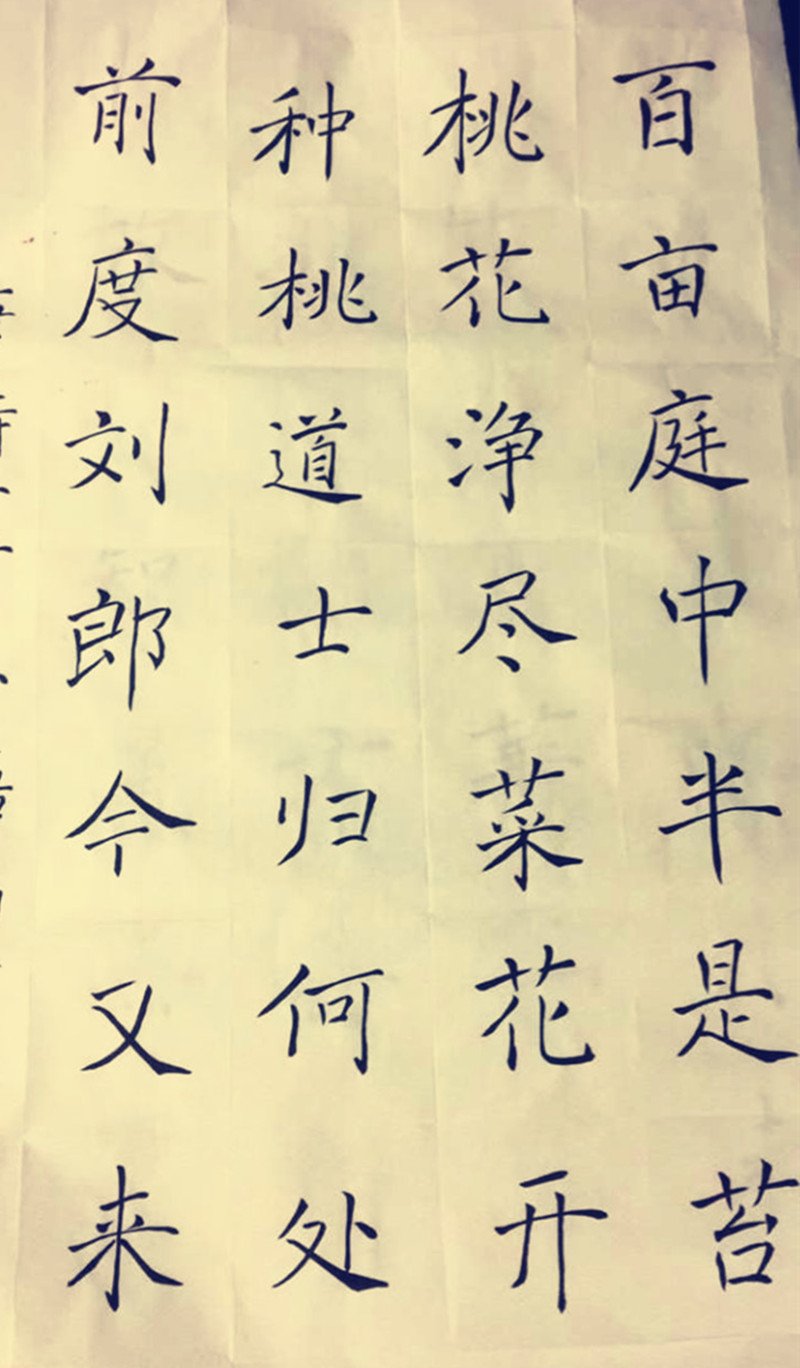 百亩庭中半是苔
桃花净尽菜花开
种桃道士归何处
前度刘郎今又来